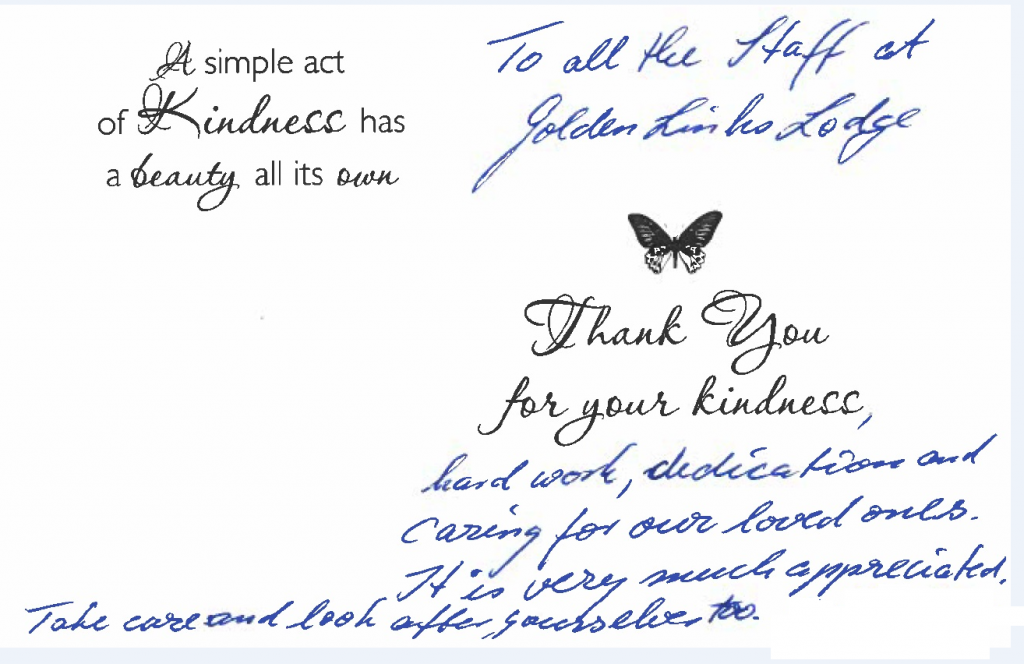 A simple act
of Kindness has
a beauty all its own
To all the Staff at
Golden Links Lodge
Thank You
for your kindness,
hard work, dedication and
caring for our loved ones.
It is very much appreciated.
Take care and look after yourselves too.